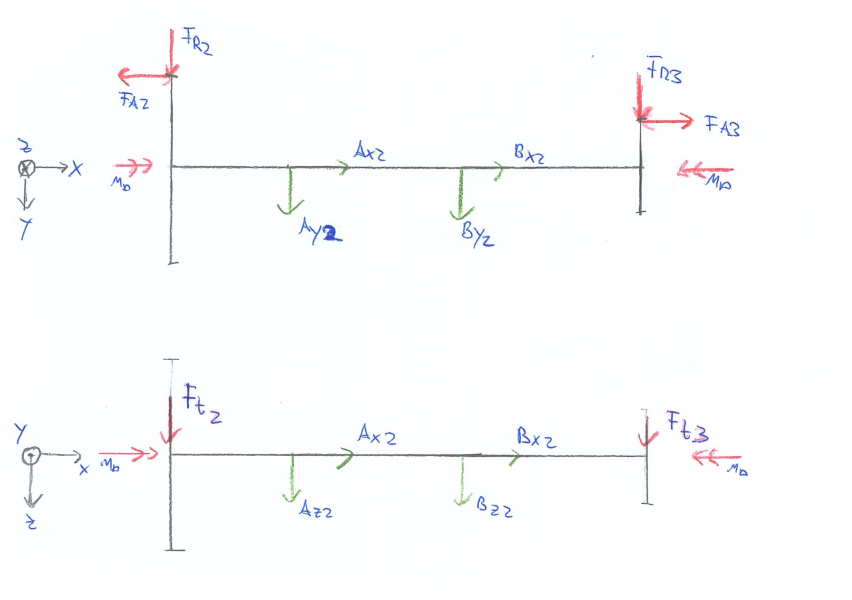 F_R2
F_A2
F_R3
F_A3
Z
X
Y
M_D
A_x2
B_x2
M_D
A_y2
B_y2
F_t2
F_t3
Y
x
z
M_D
A_x2
B_x2
M_D
A_z2
B_z2